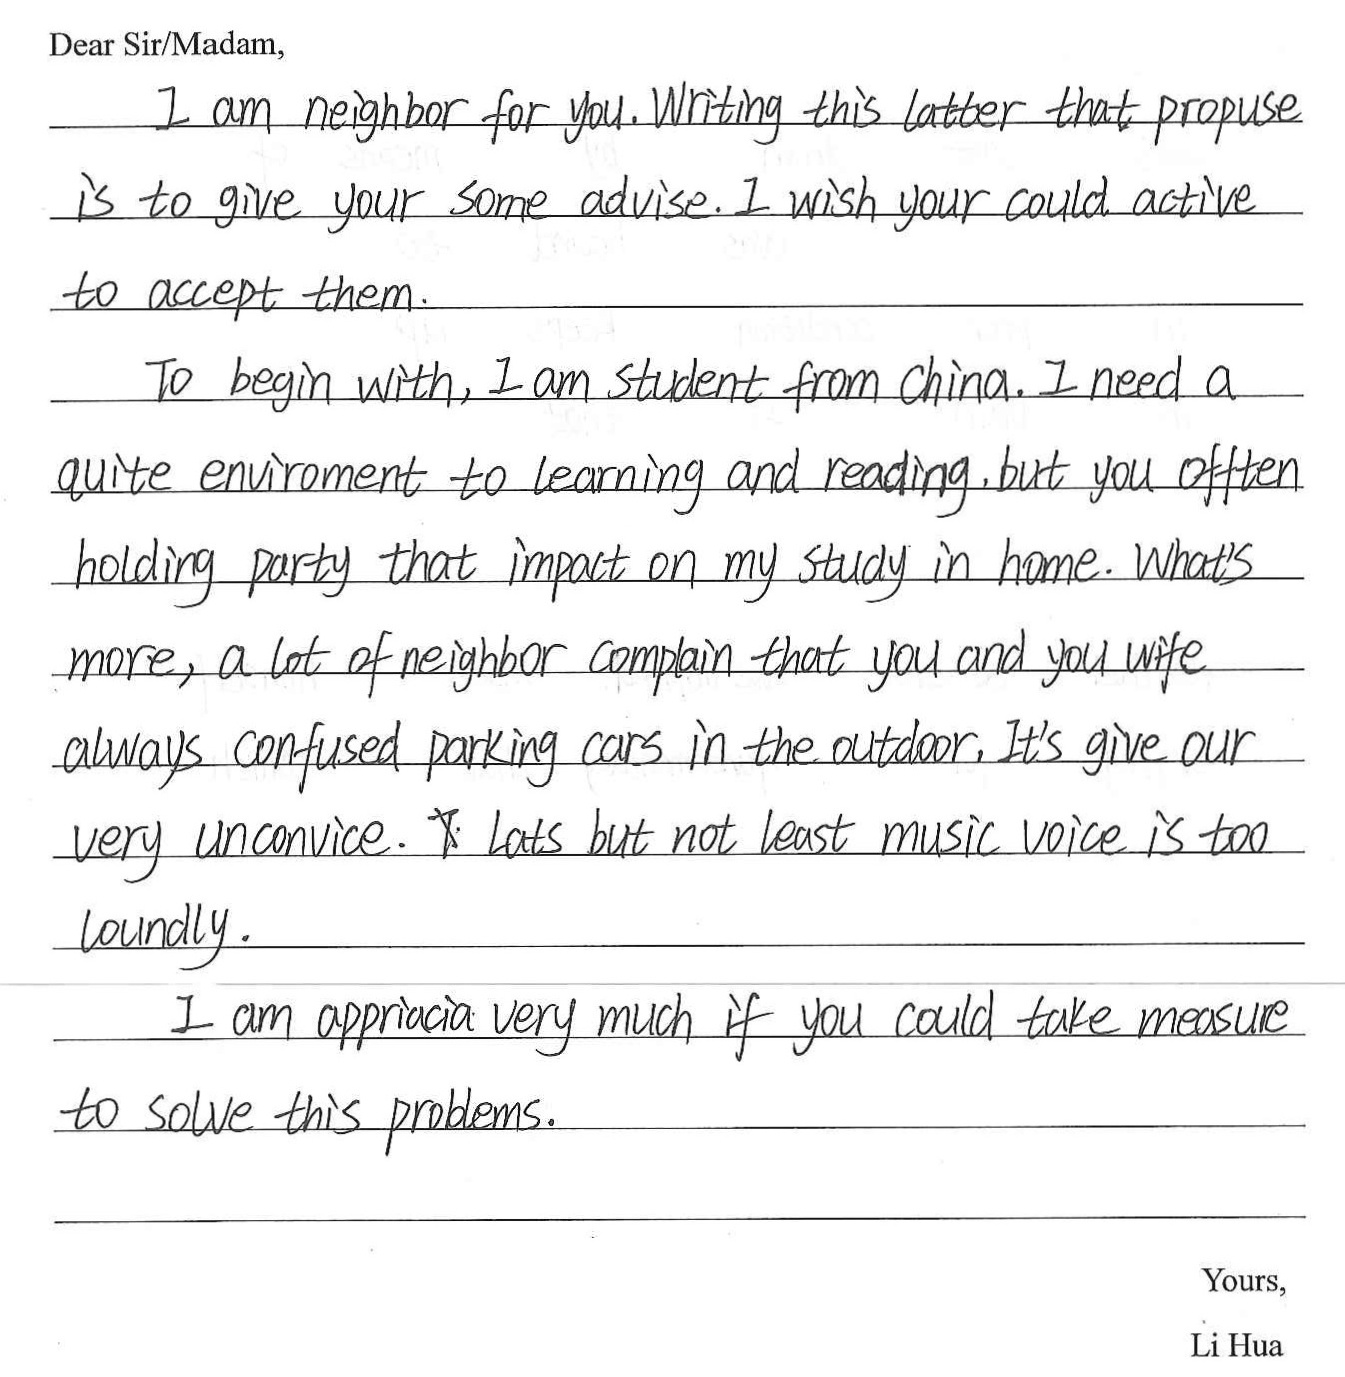 Dear Sir/Madam,
I am neighbor for you. Writing this latter that propuse
is to give your some advise. I wish your could active
to accept them.
To begin with, I am student from China. I need a
quite enviroment to learning and reading, but you offten
holding party that impact on my study in home. What's
more, a lot of neighbor complain that you and you wife
always confused parking cars in the outdoor, It's give our
very unconvice. Lats but not least music voice is too
loundly.
I am appriacia very much if you could take measure
to solve this problems.
Yours,
Li Hua